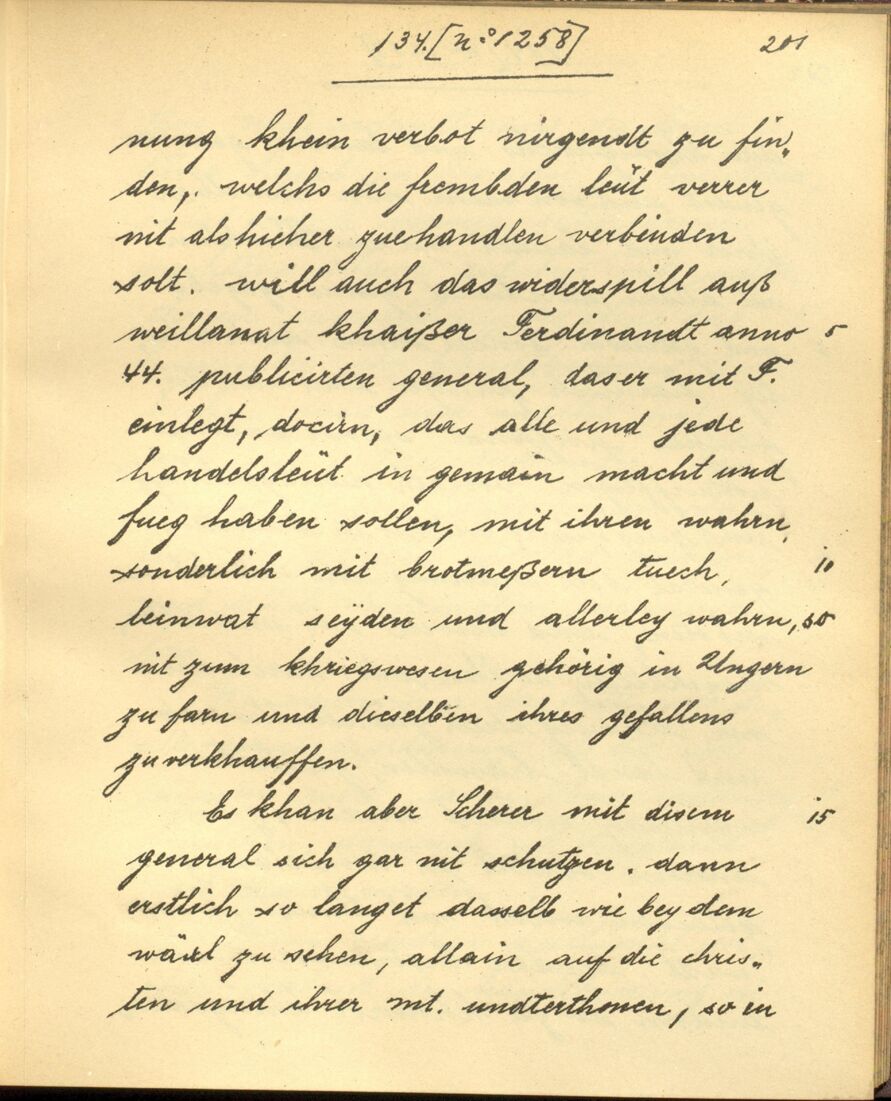 134. [n:o 1258]
201
nung khein verbot nirgendt zu fin„
den, welchs die frembden leüt verrer
nit als hieher zue handlen verbinden
solt. will auch das widerspill auß
weillanat khaißer Ferdinandt anno 5
44. publicirten general, das er mit F.
einlegt, docirn, das alle und jede
handelsleüt in gemain macht und
fueg haben sollen, mit ihren wahrn,
sonderlich mit brotmeßern tuech, 10
leinwat seÿden und allerley wahrn, so
nit zum khriegswesen gehörig in Ungern
zu farn und dieselben ihres gefallens
zu verkhauffen.
Es khan aber Scherer mit disem 15
general sich gar nit schutzen. dann
erstlich so langet dasselb wie bey dem
wärl zu sehen, allain auf die chris„
ten und ihrer mt. undterthonen, so in